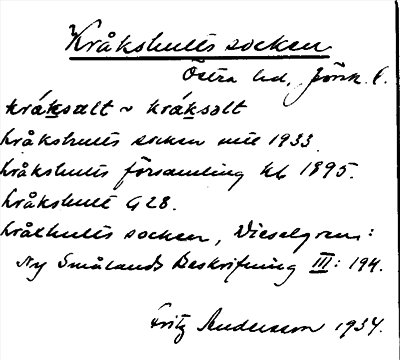 Kråkshults socken
Östra hd, Jönk. l.
kråksält ~ kråksalt
Kråkshults socken mtl 1933.
Kråkshults församling kb 1895.
Kråkshult G 28.
Kråkhults socken, Wieselgren:
Ny Smålands Beskrifning III: 194.
Fritz Andersson 1934.